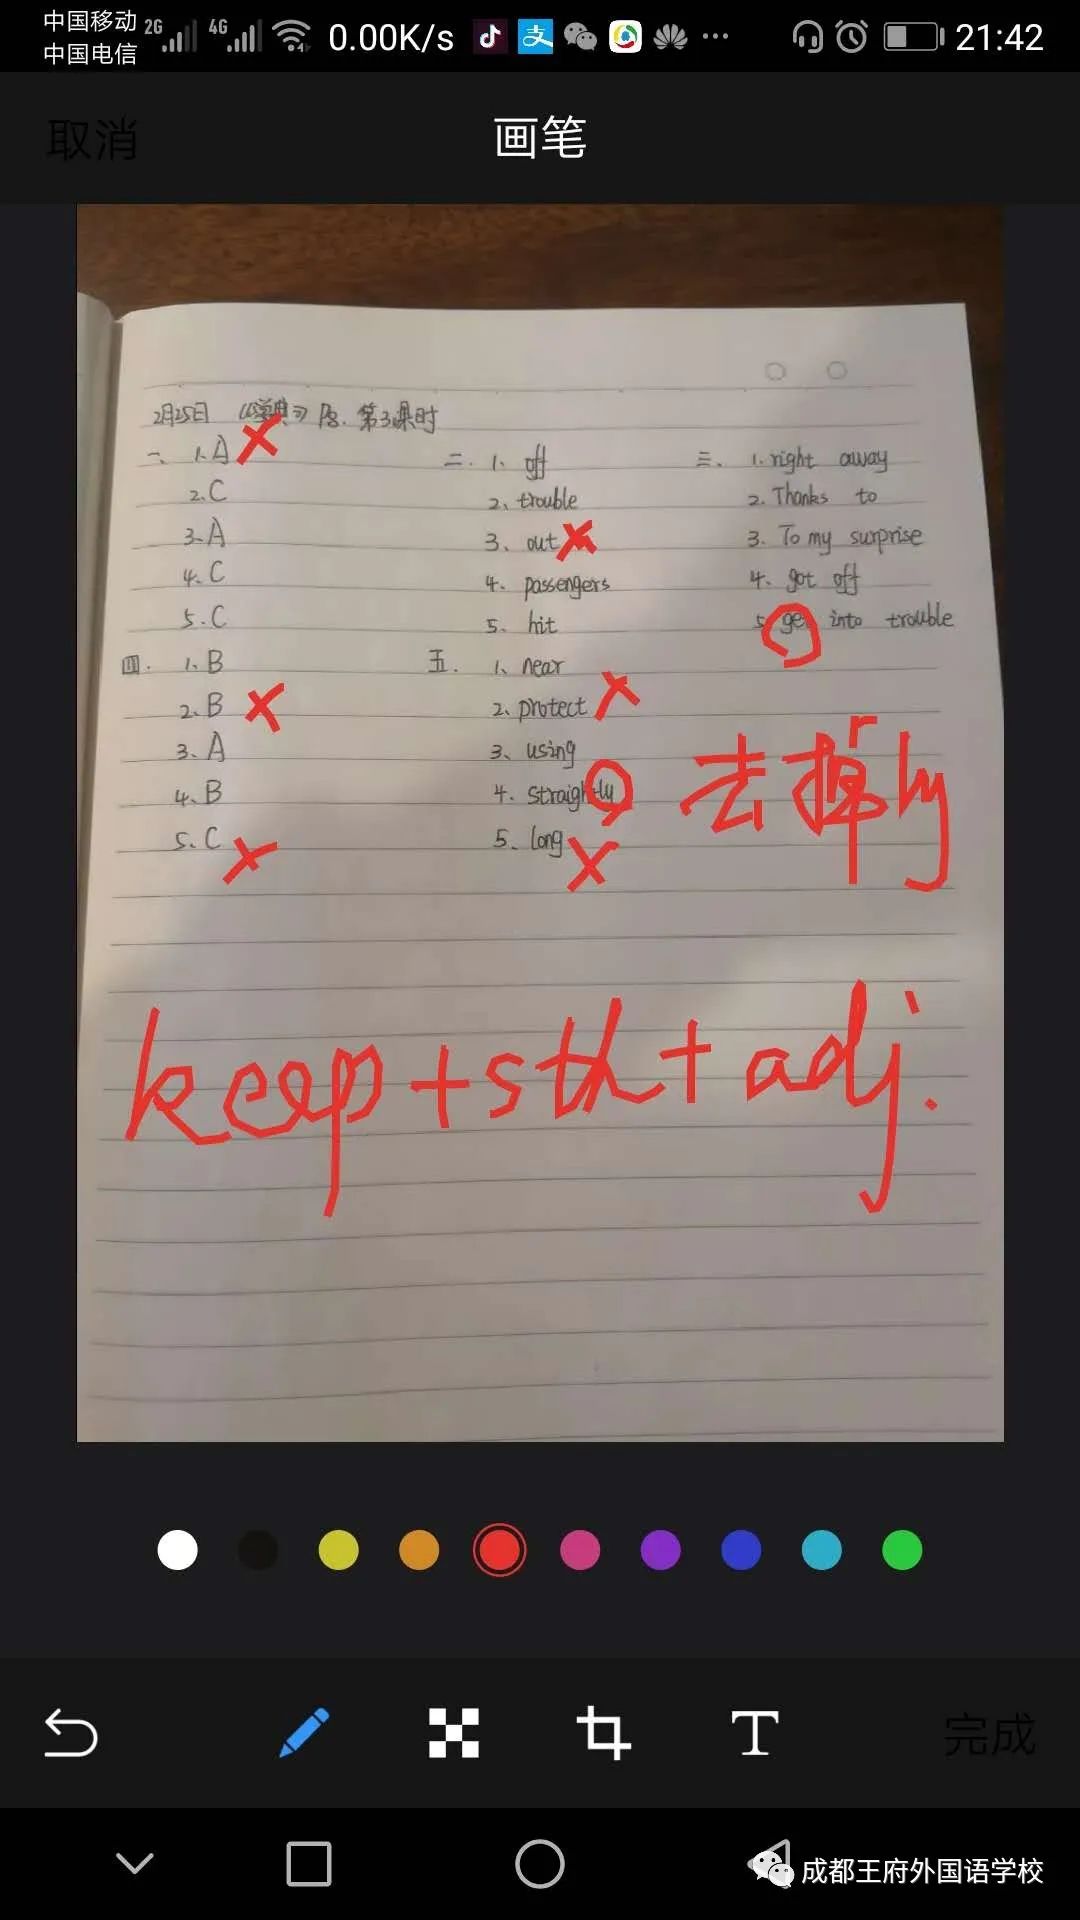 中国移动 2G 4G 0.00K/s 支 ... 21:42
中国电信
取消 画笔
2月25日 《学典》 P8. 第3课时
一、 1. A
2. C
3. A
4. C
5. C
二. 1. off
2. trouble
3. out
4. passengers
5. hit
三. 1. right away
2. Thanks to
3. To my surprise
4. got off
5. get into trouble
四. 1. B
2. B
3. A
4. B
5. C
五. 1. near
2. protect
3. using
4. straightly
5. long
去掉ly
keep+sth+adj.
T 完成
成都王府外国语学校